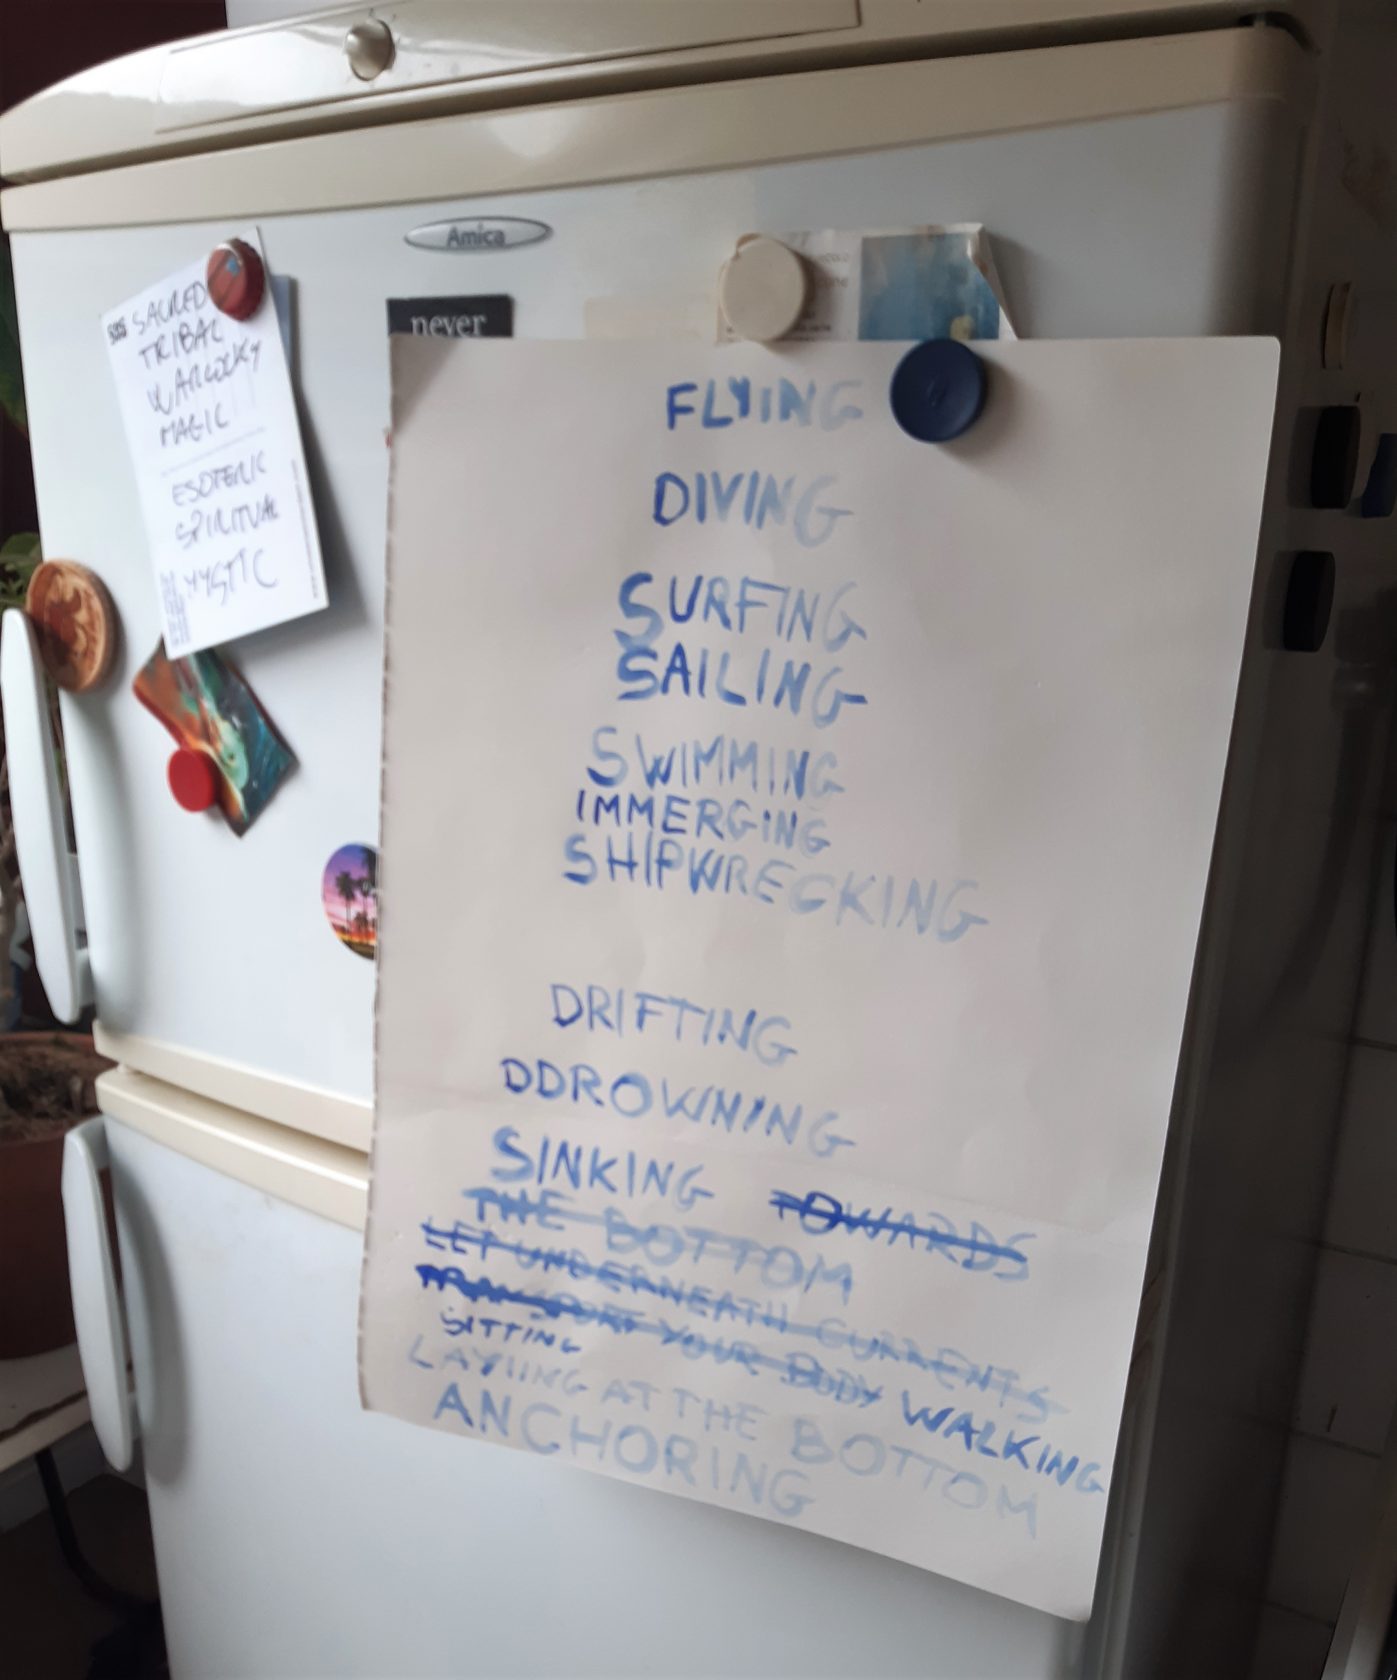 Amica
SACRED
TRIBAL
WARLOCKY
MAGIC
ESOTERIC
SPIRITUAL
MYSTIC
never
FLYING
DIVING
SURFING
SAILING
SWIMMING
IMMERGING
SHIPWRECKING
DRIFTING
DDROWNING
SINKING TOWARDS
THE BOTTOM
LET UNDERNEATH CURRENTS
TRANSPORT YOUR BODY WALKING
SITTING
LAYIING AT THE BOTTOM
ANCHORING